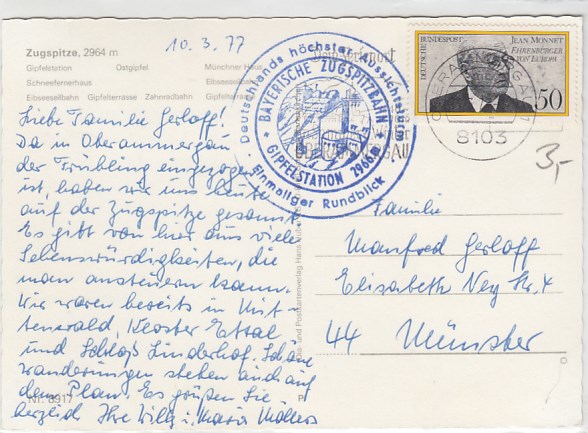 Zugspitze, 2964 m
Gipfelstation Ostgipfel Münchner Haus
Schneefernerhaus Eibseeseilbahn
Eibseeseilbahn Gipfelterrasse Zahnradbahn Gipfelterrasse
10.3.77
Liebe Familie Gerloff!
Da in Oberammergau
der Frühling eingezogen
ist, haben wir uns heute
auf der Zugspitze gesonnt.
Es gibt von hier aus viele
Sehenswürdigkeiten, die
man ansteuern kann.
Wir waren bereits in Mit-
tenwald, Kloster Ettal
und Schloß Linderhof. Schöne
wanderungen stehen auch auf
dem Plan. Es grüßen Sie
herzlich Ihre Willy u. Maria Möllers
Nr. 8917
Deutschlands höchster Aussichtsturm
BAYERISCHE ZUGSPITZBAHN
GIPFELSTATION 2966 m
Einmaliger Rundblick
DEUTSCHE BUNDESPOST
JEAN MONNET
EHRENBÜRGER
VON EUROPA
50
OBERAMMERGAU
8103
3,-
Familie
Manfred Gerloff
Elisabeth Ney Str. 4
44 Münster